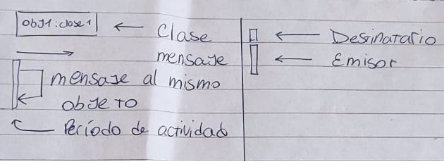 obj1.clase1 ← Clase
mensaje
mensaje al mismo
objeto
Período de actividad
Desinatario
Emisor